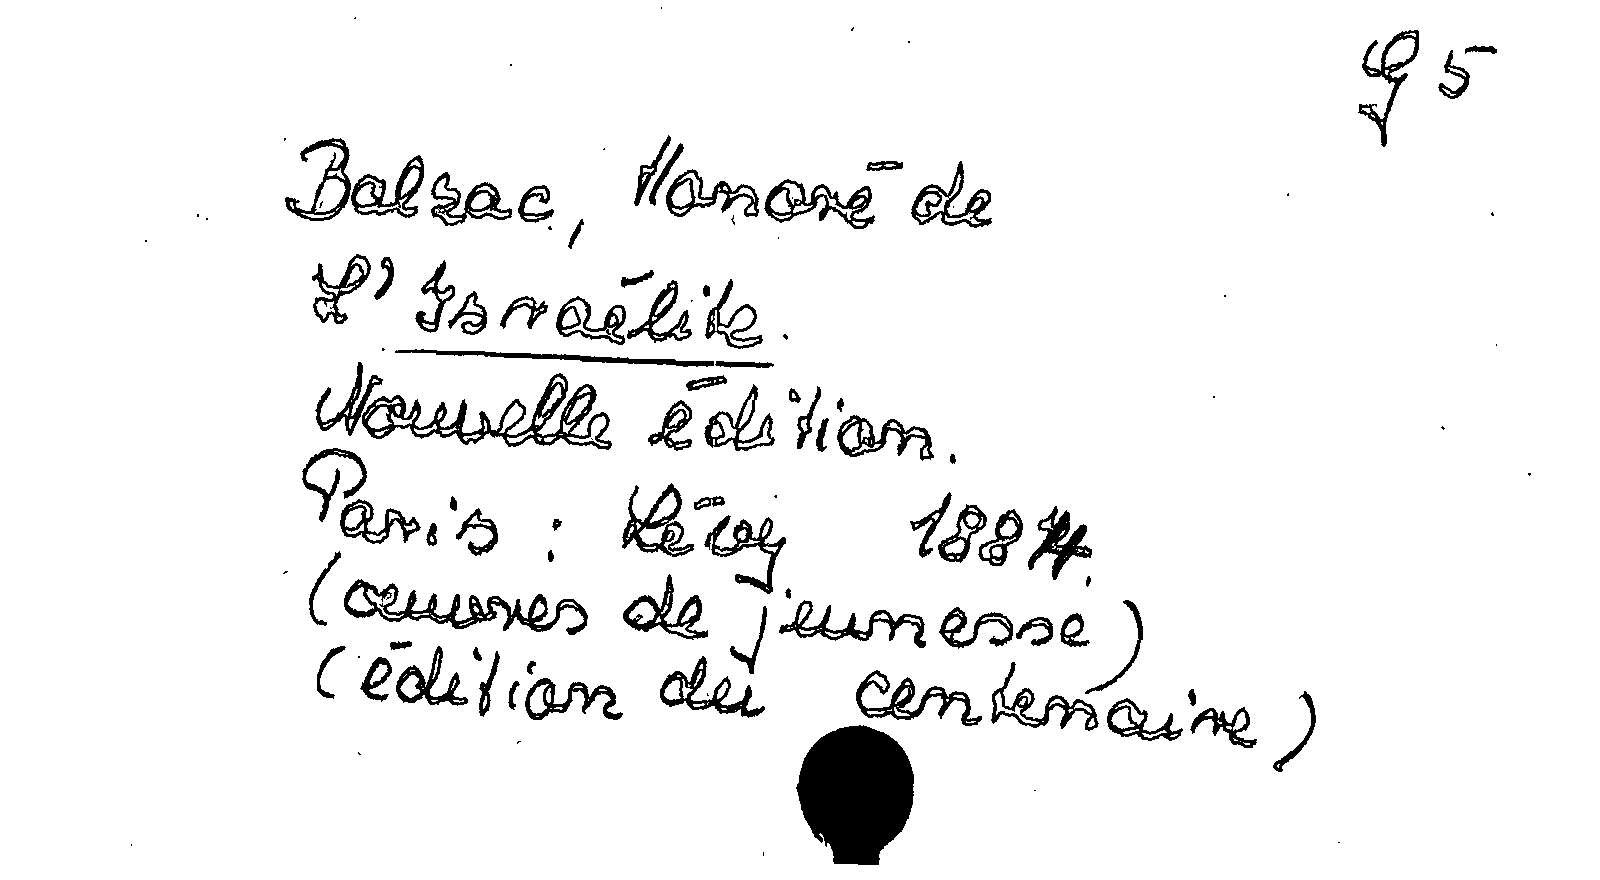 G 5
Balzac, Honoré de
L'Israélite.
Nouvelle édition.
Paris : Lévy 1884.
(œuvres de jeunesse)
(édition du centenaire)